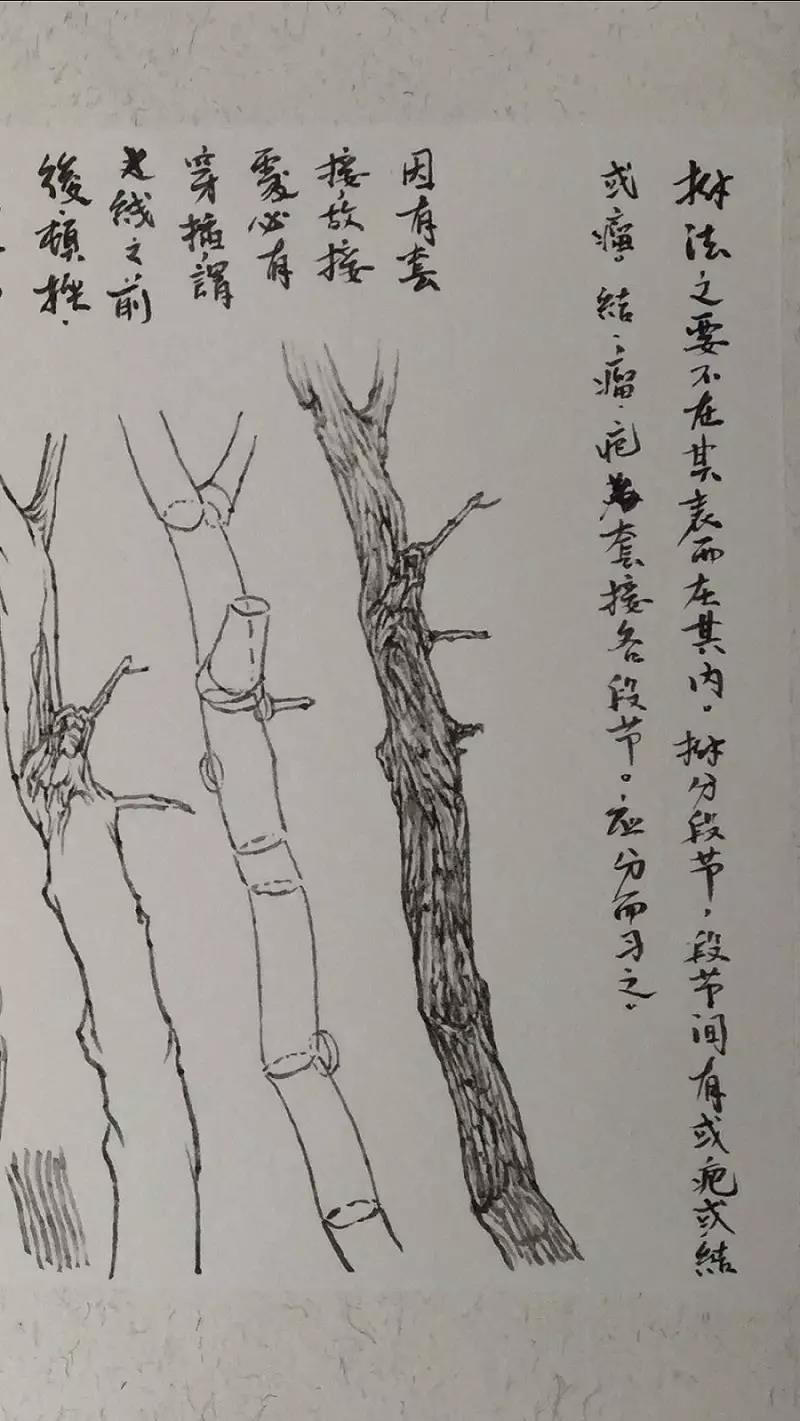 树法之要不在其表而在其内。树分段节，段节间有或疤或结
或瘤。结、瘤、疤为套接各段节。应分而习之。
因有套
接，故接
處必有
穿插，謂
线之前
後，頓挫、